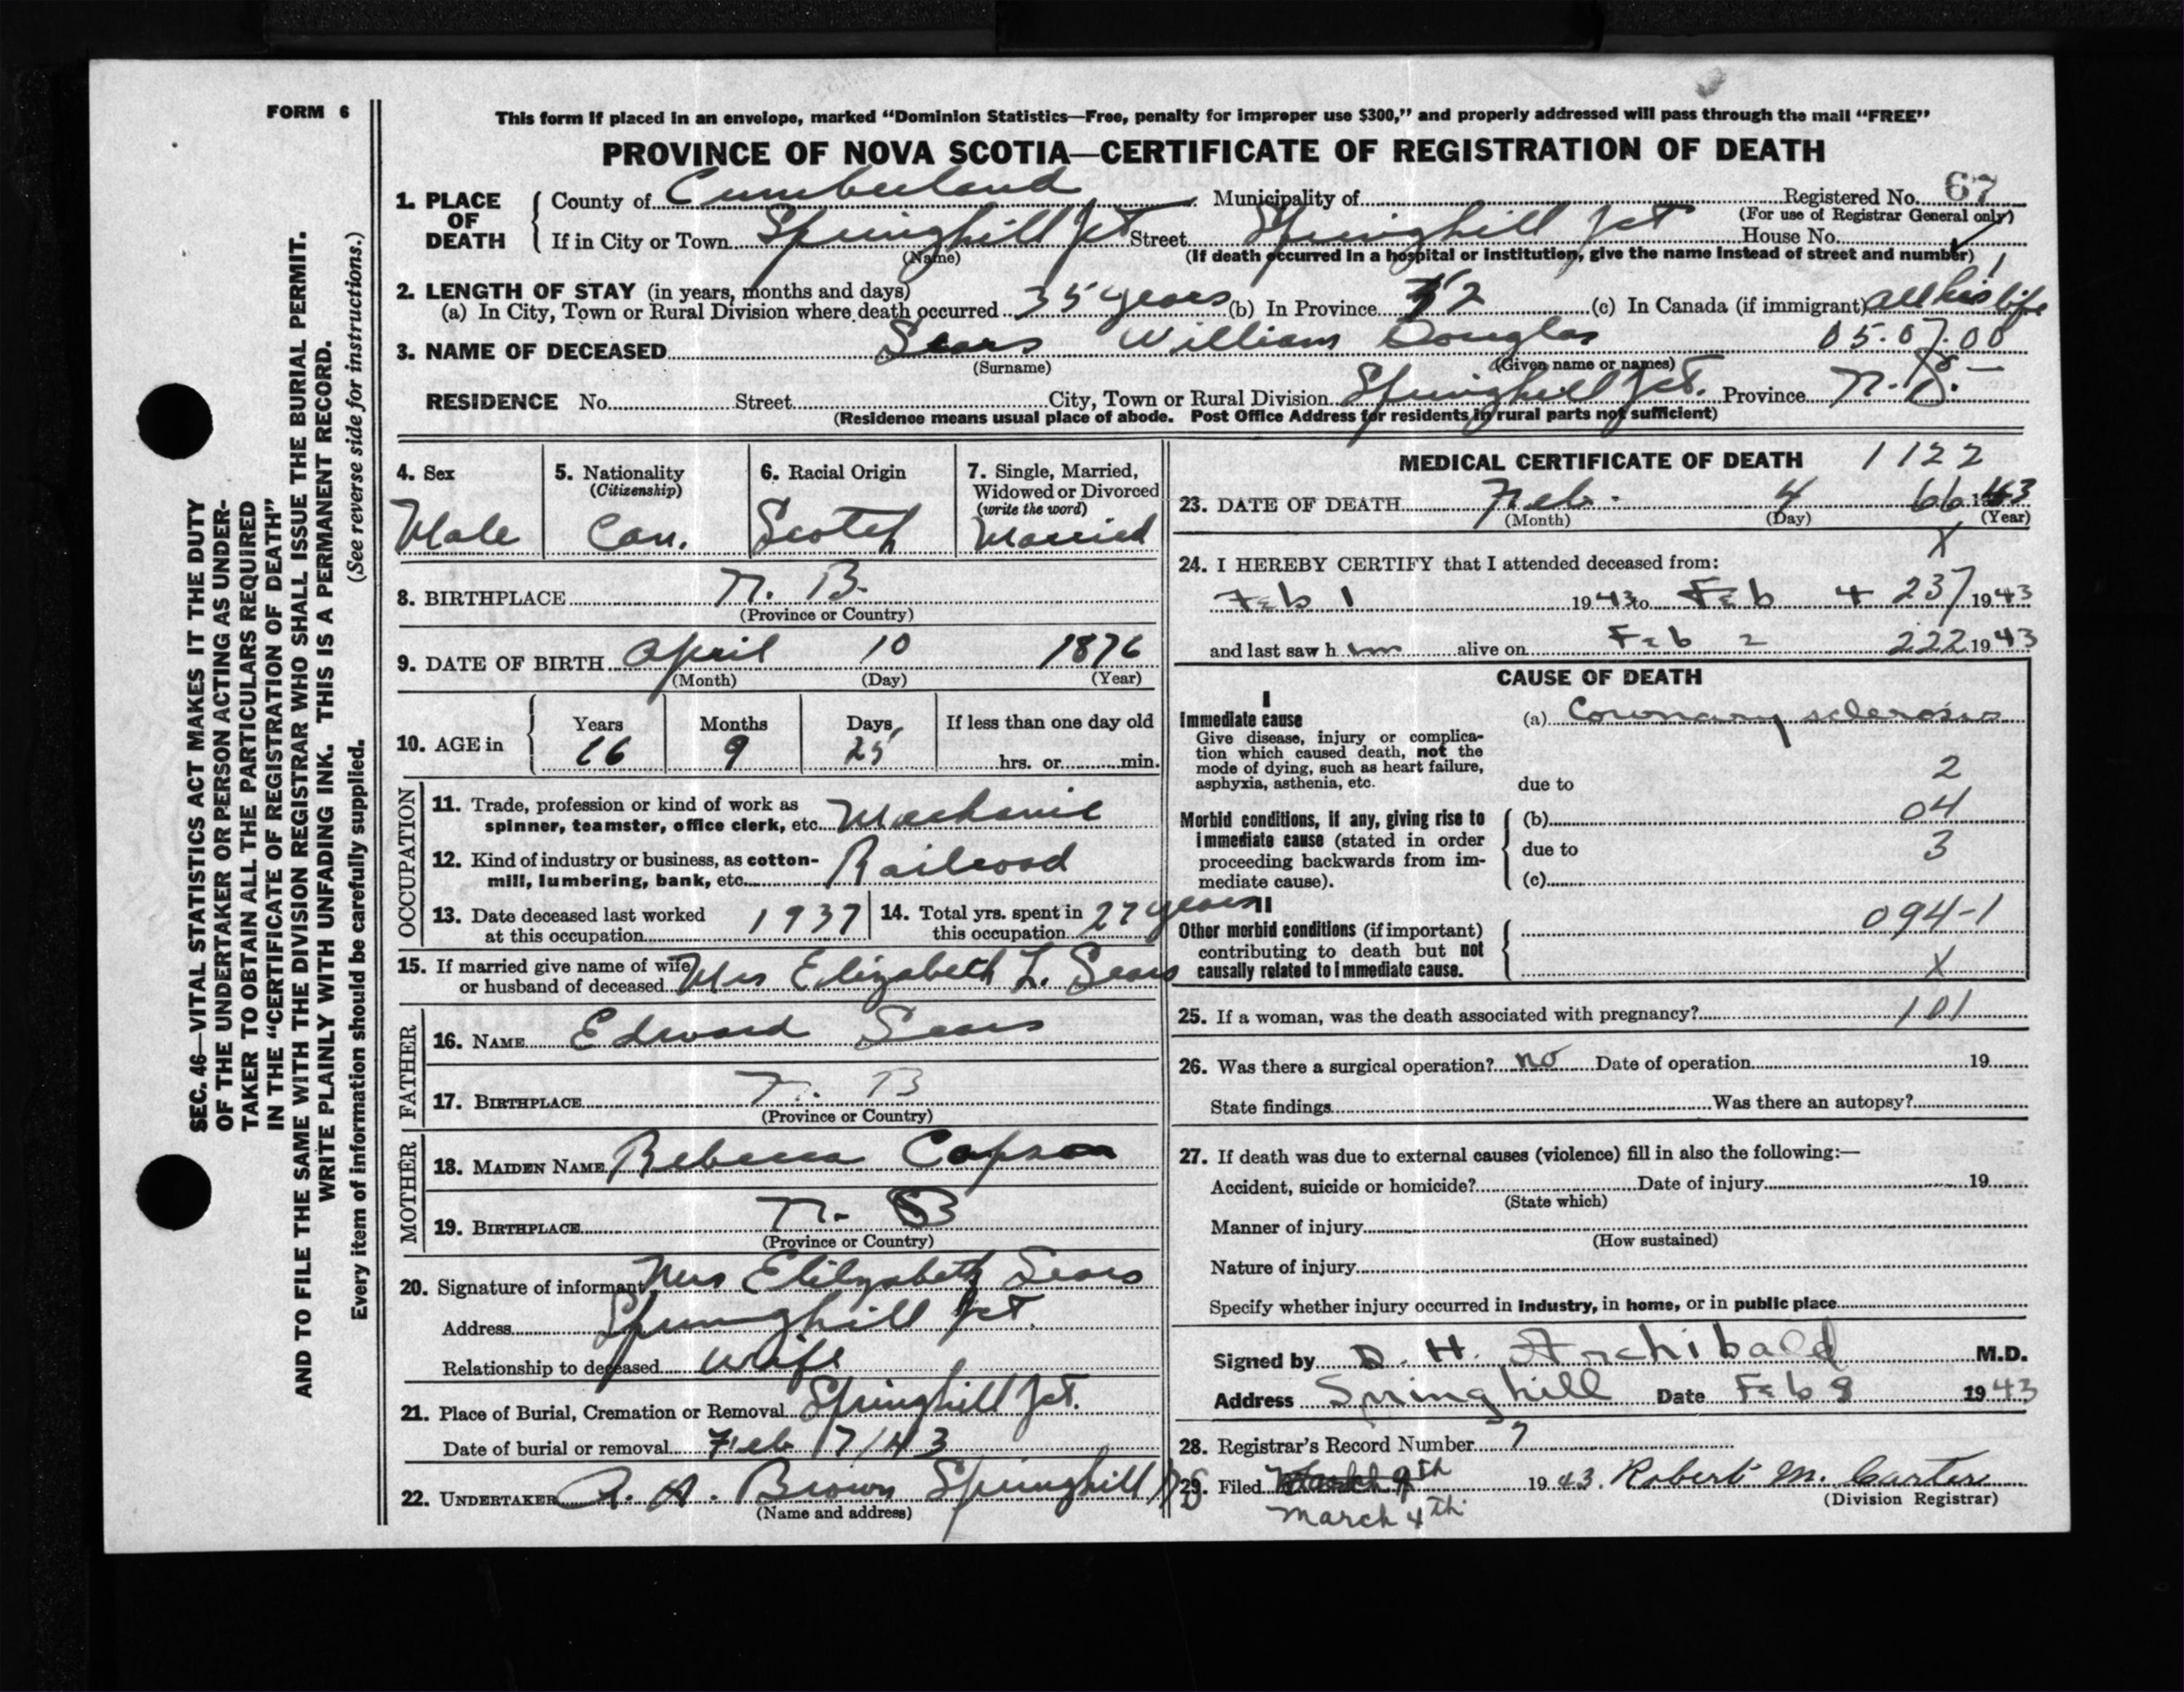 FORM 6
This form if placed in an envelope, marked “Dominion Statistics—Free, penalty for improper use $300,” and properly addressed will pass through the mail “FREE”
PROVINCE OF NOVA SCOTIA—CERTIFICATE OF REGISTRATION OF DEATH
1. PLACE OF DEATH County of Cumberland Municipality of Registered No. 67
(For use of Registrar General only)
If in City or Town Springhill Jct Street Springhill Jct House No.
(Name) (If death occurred in a hospital or institution, give the name instead of street and number)
2. LENGTH OF STAY (in years, months and days)
(a) In City, Town or Rural Division where death occurred 35 years (b) In Province 52 (c) In Canada (if immigrant) all his life
3. NAME OF DECEASED Sears William Douglas 05.07.00
(Surname) (Given name or names)
RESIDENCE No. Street City, Town or Rural Division Springhill Jct. Province N.S.
(Residence means usual place of abode. Post Office Address for residents in rural parts not sufficient)
4. Sex
Male
5. Nationality
(Citizenship)
Can.
6. Racial Origin
Scotch
7. Single, Married,
Widowed or Divorced
(write the word)
Married
8. BIRTHPLACE N. B.
(Province or Country)
9. DATE OF BIRTH April 10 1876
(Month) (Day) (Year)
10. AGE in Years Months Days If less than one day old
66 9 25 hrs. or min.
OCCUPATION
11. Trade, profession or kind of work as
spinner, teamster, office clerk, etc. Mechanic
12. Kind of industry or business, as cotton-
mill, lumbering, bank, etc. Railroad
13. Date deceased last worked
at this occupation 1937
14. Total yrs. spent in
this occupation 27 years
15. If married give name of wife
or husband of deceased Mrs Elizabeth L. Sears
FATHER
16. NAME Edward Sears
17. BIRTHPLACE N. B
(Province or Country)
MOTHER
18. MAIDEN NAME Rebecca Capson
19. BIRTHPLACE N. B
(Province or Country)
20. Signature of informant Mrs Elizabeth Sears
Address Springhill Jct.
Relationship to deceased wife
21. Place of Burial, Cremation or Removal Springhill Jct.
Date of burial or removal Feb 7/43
22. UNDERTAKER A. A. Brown Springhill NS
(Name and address)
MEDICAL CERTIFICATE OF DEATH 1122
23. DATE OF DEATH Feb. 4 66 1943
(Month) (Day) (Year)
X
24. I HEREBY CERTIFY that I attended deceased from:
Feb 1 1943 to Feb 4 237 1943
and last saw h im alive on Feb 2 222 1943
CAUSE OF DEATH
I
Immediate cause
Give disease, injury or complica-
tion which caused death, not the
mode of dying, such as heart failure,
asphyxia, asthenia, etc.
(a) Coronary sclerosis
2
due to
Morbid conditions, if any, giving rise to
immediate cause (stated in order
proceeding backwards from im-
mediate cause).
(b) 04
due to 3
(c)
II
Other morbid conditions (if important)
contributing to death but not
causally related to immediate cause.
094-1
X
25. If a woman, was the death associated with pregnancy? 101
26. Was there a surgical operation? no Date of operation 19
State findings Was there an autopsy?
27. If death was due to external causes (violence) fill in also the following:—
Accident, suicide or homicide? Date of injury 19
(State which)
Manner of injury
(How sustained)
Nature of injury
Specify whether injury occurred in industry, in home, or in public place
Signed by D. H. Archibald M.D.
Address Springhill Date Feb 9 1943
28. Registrar's Record Number 7
29. Filed 9th 1943. Robert M. Carter
(Division Registrar)
March 4th
SEC. 46—VITAL STATISTICS ACT MAKES IT THE DUTY
OF THE UNDERTAKER OR PERSON ACTING AS UNDER-
TAKER TO OBTAIN ALL THE PARTICULARS REQUIRED
IN THE “CERTIFICATE OF REGISTRATION OF DEATH”
AND TO FILE THE SAME WITH THE DIVISION REGISTRAR WHO SHALL ISSUE THE BURIAL PERMIT.
WRITE PLAINLY WITH UNFADING INK. THIS IS A PERMANENT RECORD.
Every item of information should be carefully supplied. (See reverse side for instructions.)